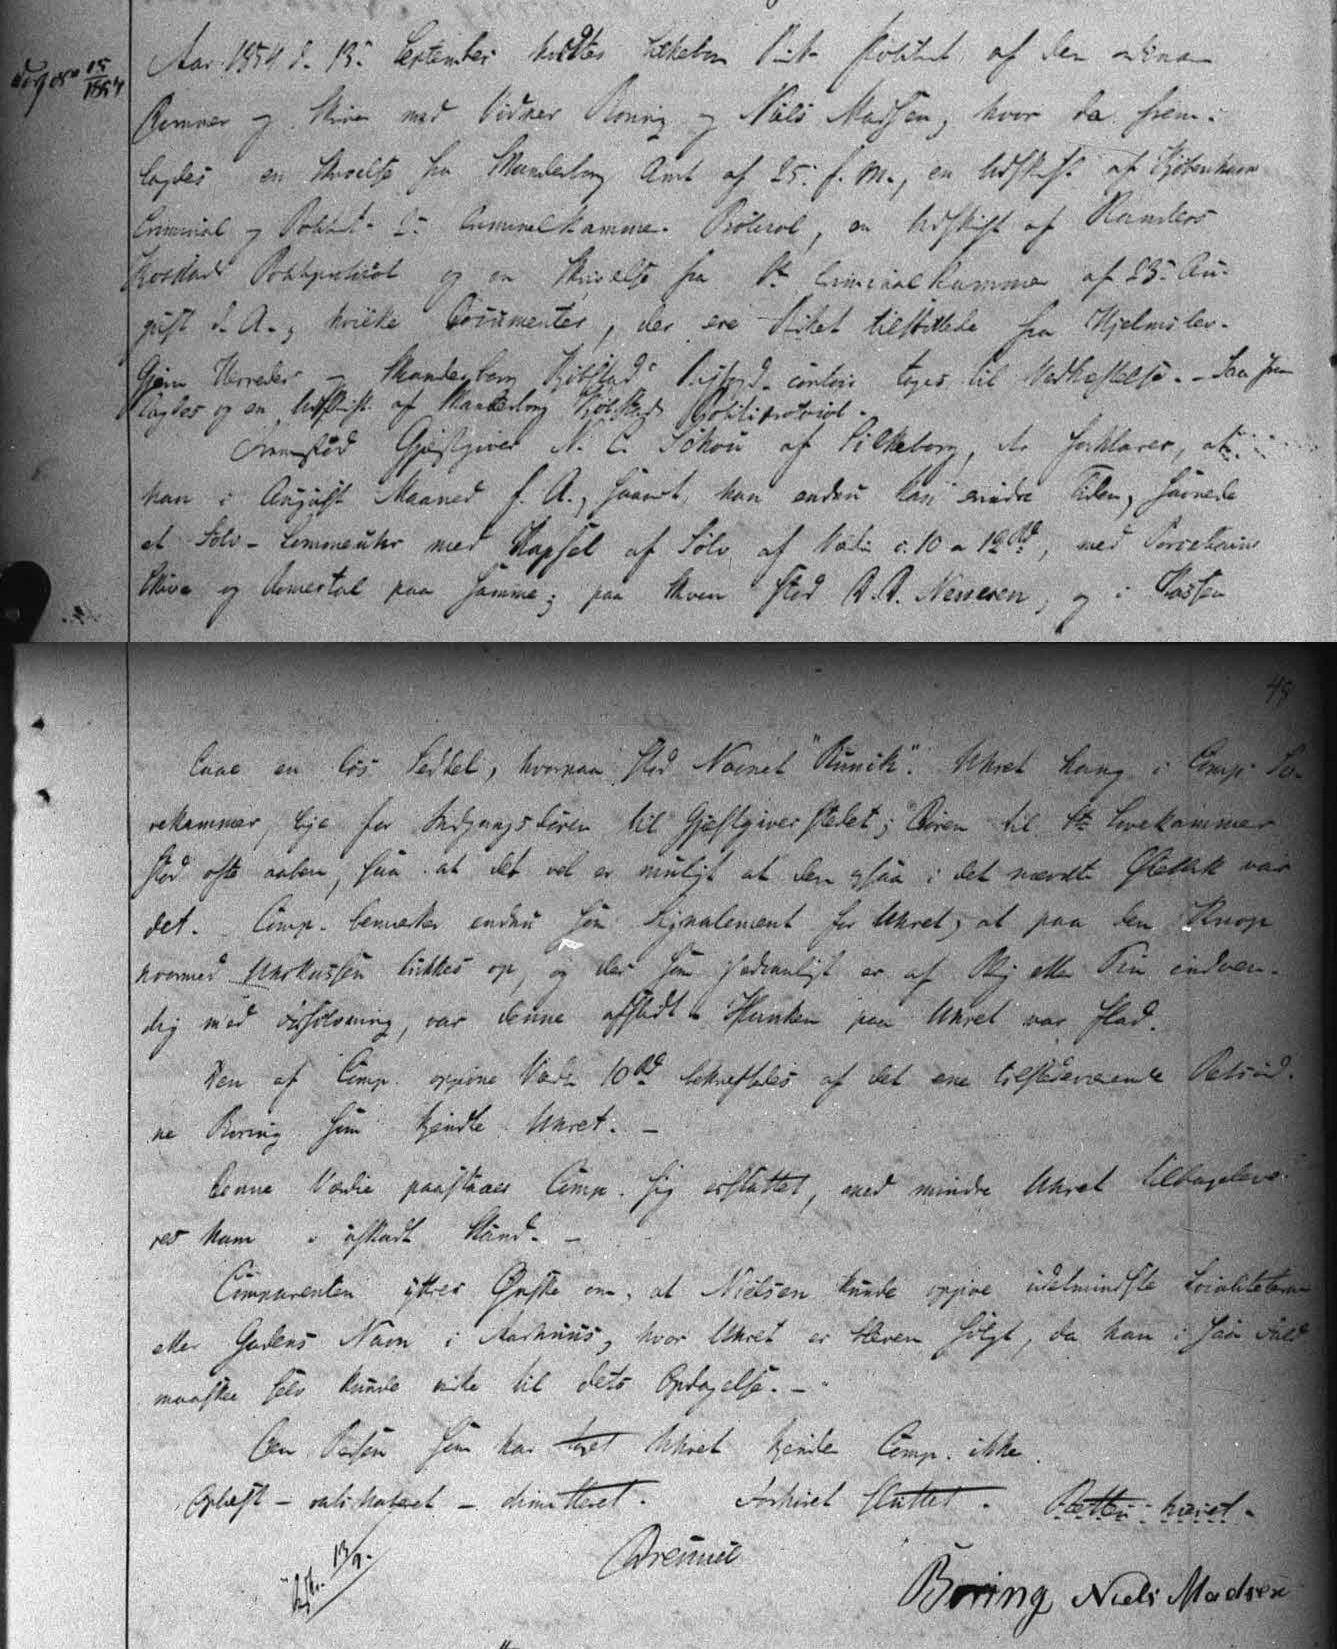 Aar 1854 d. 13. September holdtes Silkeborg Birks Politiret af den ordinaire
Dommer og Skriver med Vidner Boring og Niels Madsen, hvor da frem-
lagdes en Skrivelse fra Skanderborg Amt af 25. f. M., en Udskrift af Kjøbenhavns
Criminal og Politirets 2. Criminalkammers Protocol, en Udskrift af Randers
Kjøbstads Politiprotocol og en Skrivelse fra Criminalkammer af 23. Au-
gust d. A., hvilke Documenter, der ere Birket tilstillede fra Hjelmslev-
Gjern Herreder og Skanderborg Kjøbstads contoir toges til Vedhæftelse. - Saa frem
lagdes og en Udskrift af Skanderborg Kjøbstads Politiprotocol.
Fremstod Gjæstgiver N. C. Schou af Silkeborg, der forklarer, at
han i August Maaned f. A., saavidt han endnu kan erindre Tiden, savnede
et Sølv-Lommeuhr med Kapsel af Sølv af Værdi c. 10 a 12 Rd, med Porcellains
Skive og Romertal paa samme; paa Skiven stod og i Kassen
laae en løs Seddel, hvorpaa stod Navnet "Runick". Uhret hang i Comp. So-
vekammer, lige for Indgangsdøren til Gjæstgiverstedet; Døren til Sovekammer
stod ofte aaben, saa at det vel er muligt at den ogsaa i det nævnte Øieblik var
det. Comp. bemærker endnu som Signalement for Uhret, at paa den Knop
hvormed Uhrkassen lukkes op, og der som sædvanligt er af Bly eller Tin indven-
dig med Forsølvning, var denne afslidt. Hanken paa Uhret var flad.
Den af Comp. opgivne Værdi 10 Rd bekræftedes af det ene tilstedeværende Retsvid-
ne Boring som kjendte Uhret. -
Denne Værdie paastaaer Comp. sig erstattet, med mindre Uhret tilbageleve-
res ham i uskadt Stand. -
Comparenten yttrer Ønske om, at Nielsen kunde opgive idetmindste Localiteterne
eller Gadens Navn i Aarhuus, hvor Uhret er bleven solgt, da han i saa Fald
maaskee selv kunde virke til dets Opdagelse. -
Den Person som har Uhret kjender Comp. ikke.
Oplæst - ratihaberet - dimitteret. Forhøret sluttet. Retten hævet.
13/9.
Boring Niels Madsen